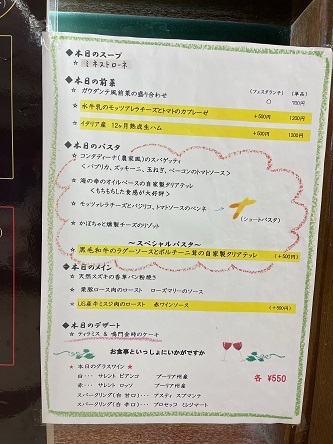 ◆本日のスープ
☆ ミネストローネ
◆本日の前菜
☆ ガウダンテ風前菜の盛り合わせ (フェスタランチ) (単品)
○ 900円
☆ 水牛乳のモッツアレラチーズとトマトのカプレーゼ +500円 1200円
☆ イタリア産 12ヶ月熟成生ハム +500円 1200円
◆本日のパスタ
☆ コンタディーナ(農家風)のスパゲッティ
<パプリカ、ズッキーニ、玉ねぎ、ベーコンのトマトソース>
☆ 海の幸のオイルベースの自家製タリアテレ
くもちもちした食感が大好評♪
☆ モッツァレラチーズとバジリコ、トマトソースのペンネ
(ショートパスタ)
☆ かぼちゃと燻製チーズのリゾット
～スペシャルパスタ～
☆ 黒毛和牛のラグーソースとポルチーニ茸の自家製タリアテレ (+500円)
◆本日のメイン
☆ 天然スズキの香草パン粉焼き
☆ 豚ロース肉のロースト ローズマリーのソース
☆ US産牛ミスジ肉のロースト 赤ワインソース (+500円)
◆本日のデザート
☆ ティラミス & 鳴門金時のケーキ
お食事といっしょにいかがですか
★ 本日のグラスワイン ★
白・・・ サレント ビアンコ プーリア州産
赤・・・ サレント ロッソ プーリア州産
スパークリング(白 甘口) ・・・ アスティ スプマンテ
スパークリング(白 辛口) ・・・ プロセッコ ミレジマート
各 ¥550